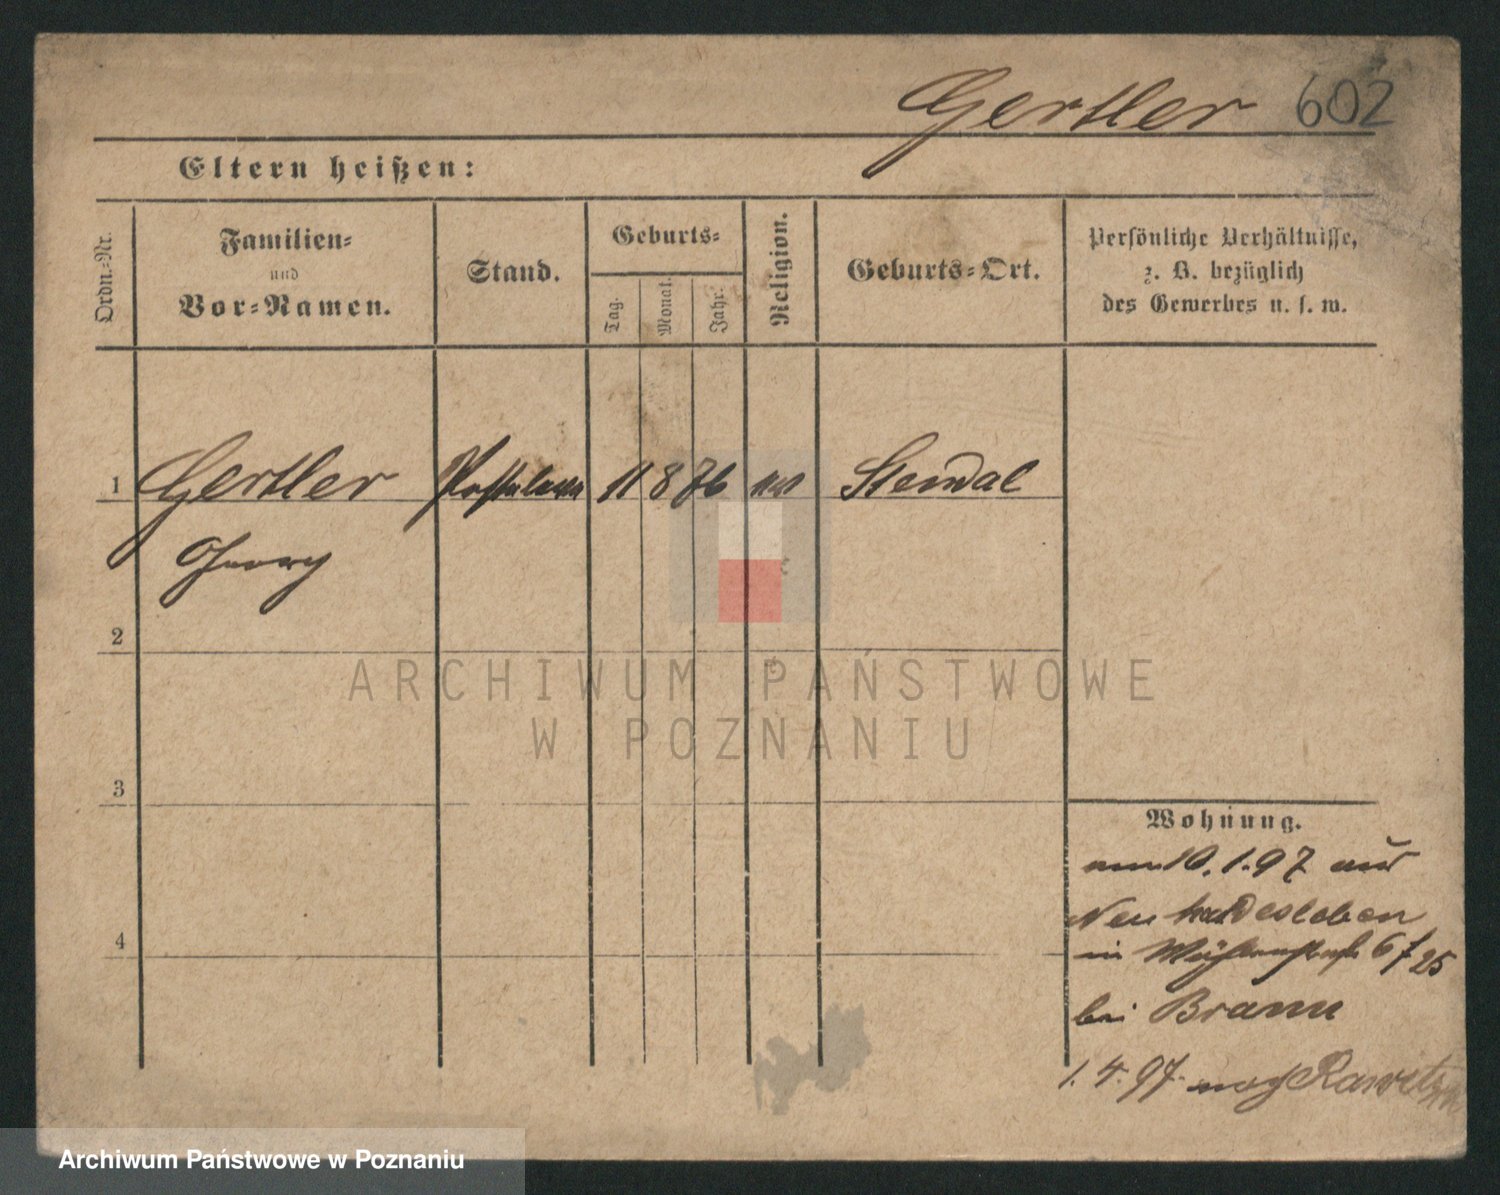 Gertler 602
Eltern heißen:
Ordn.=Nr.
Familien=
und
Vor=Namen.
Stand.
Geburts=
Tag.
Monat.
Jahr.
Religion.
Geburts=Ort.
Persönliche Verhältnisse,
z. B. bezüglich
des Gewerbes u. s. w.
1 Gertler 11 8 76 Stendal
Georg
2
3
4
Wohnung.
am 10. 1. 97 aus
Neuhaldesleben
in 6/25
bei Braun
1. 4. 97 nach Rawitsch
ARCHIWUM PAŃSTWOWE
W POZNANIU
Archiwum Państwowe w Poznaniu